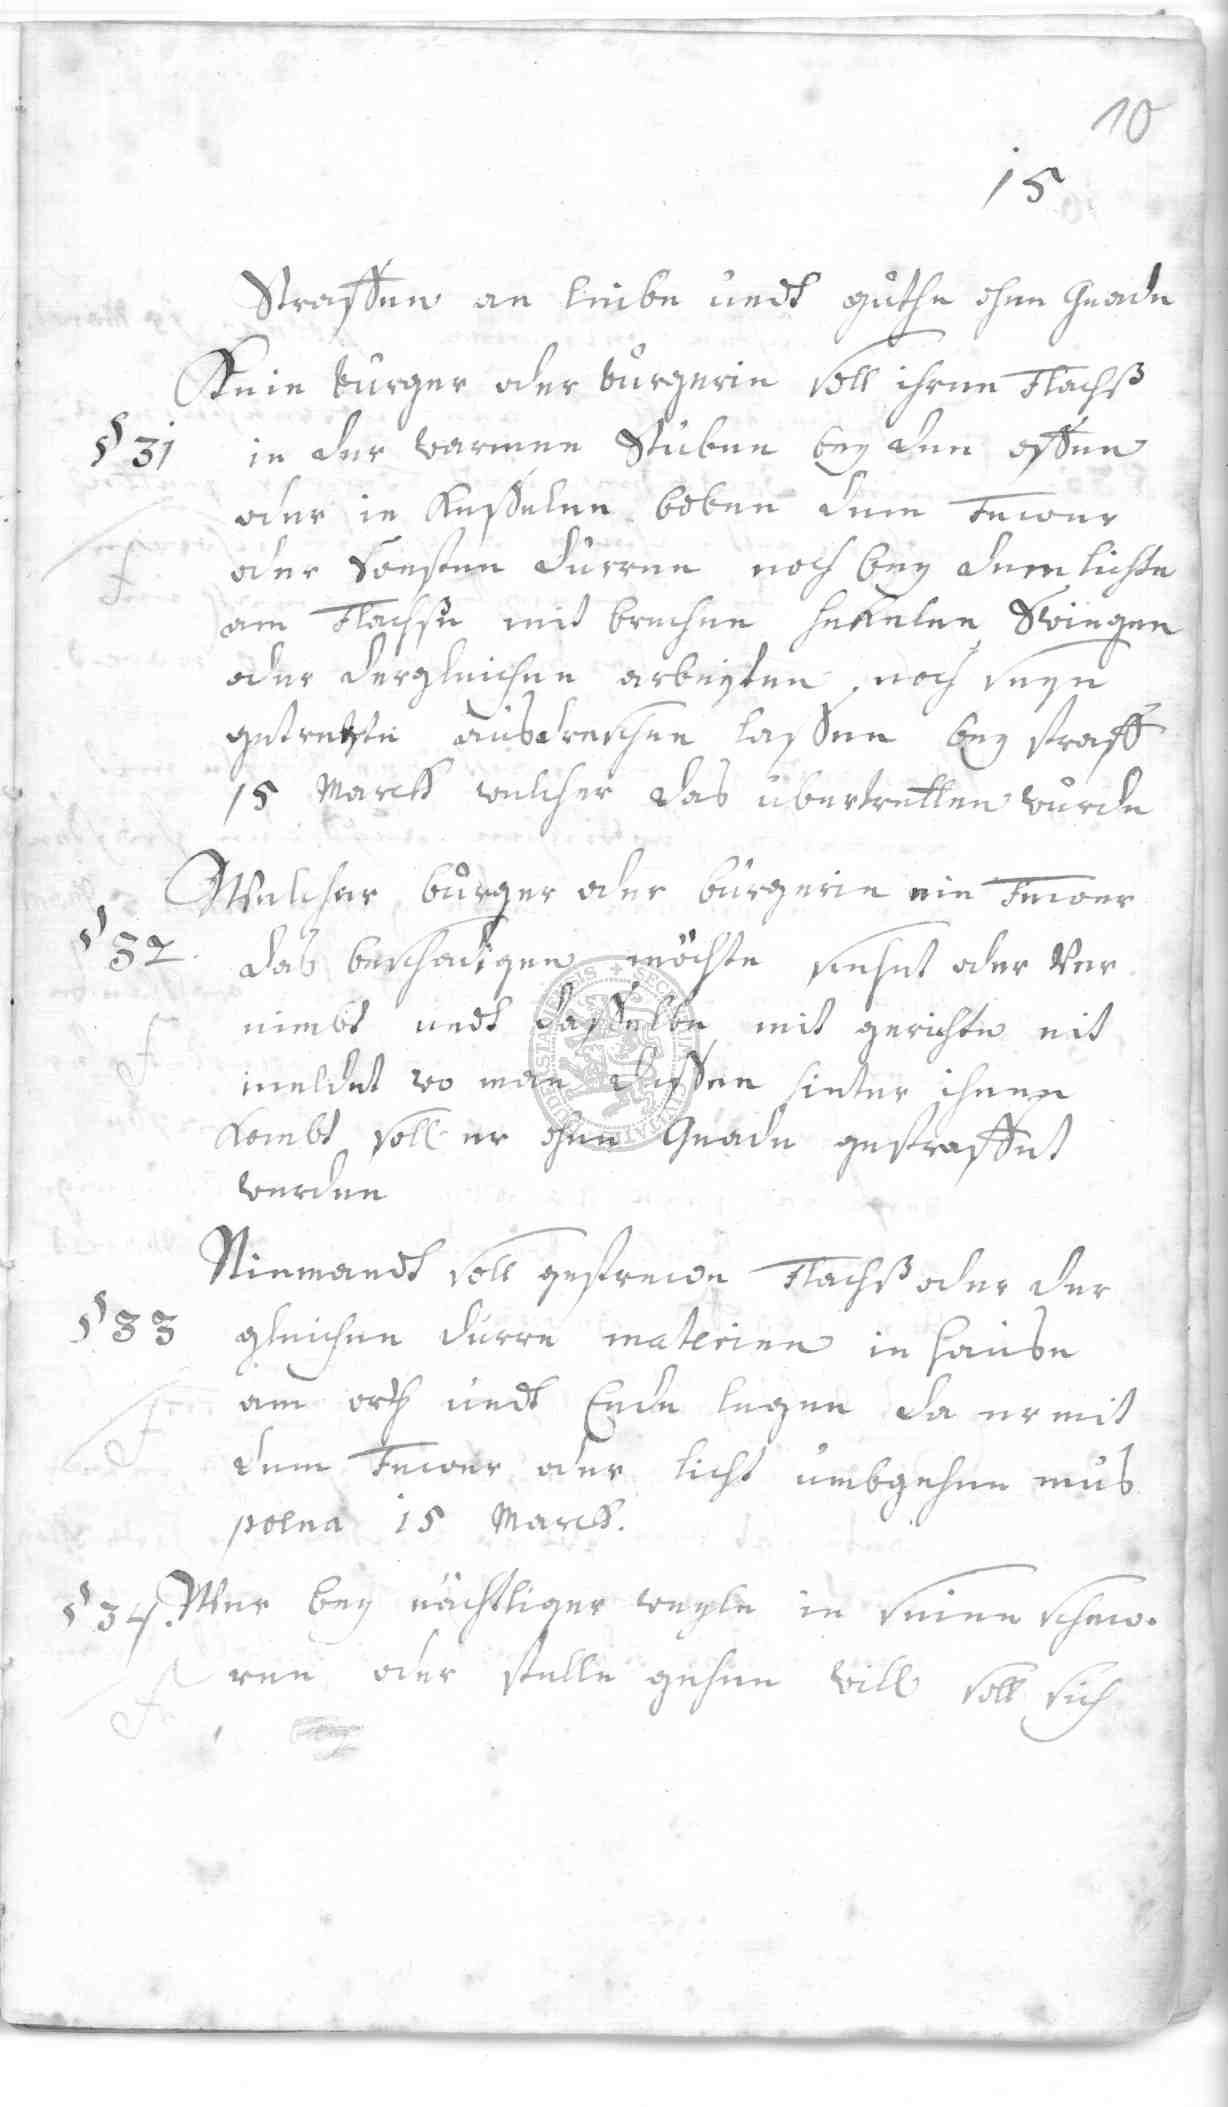 10
15
Straffen an leibe undt guthe ohne Gnade
Kein burger oder burgerin soll ihren Flachß
§ 31 in der warmen Stuben bey den offen
oder in Kesselen boben dem Fewer
oder Sonsten durren noch bey dem lichte
am Flachse mit brechen hekelen Swingen
oder dergleichen arbeyten noch seyn
getreyte ausdreschen lassen bey straff
15 Marck welcher das ubertretten wurde
Welcher burger oder burgerin ein Fewer
§ 32. das beschadigen möchte siehet oder Ver
nimbt undt dasselbe mit gerichte nit
meldet wo man dessen hinter ihnen
kombt soll er ohne Gnade gestraffet
werden
Niemandt soll gestrewe Flachß oder der
§ 33 gleichen durre materien in hause
am orth undt Ende legen da er mit
dem Fewer oder licht umbgehen mus
poena 15 Marck.
§ 34. Wer bey nächtliger weyle in seine schew.
ren oder stelle gehen will soll sich